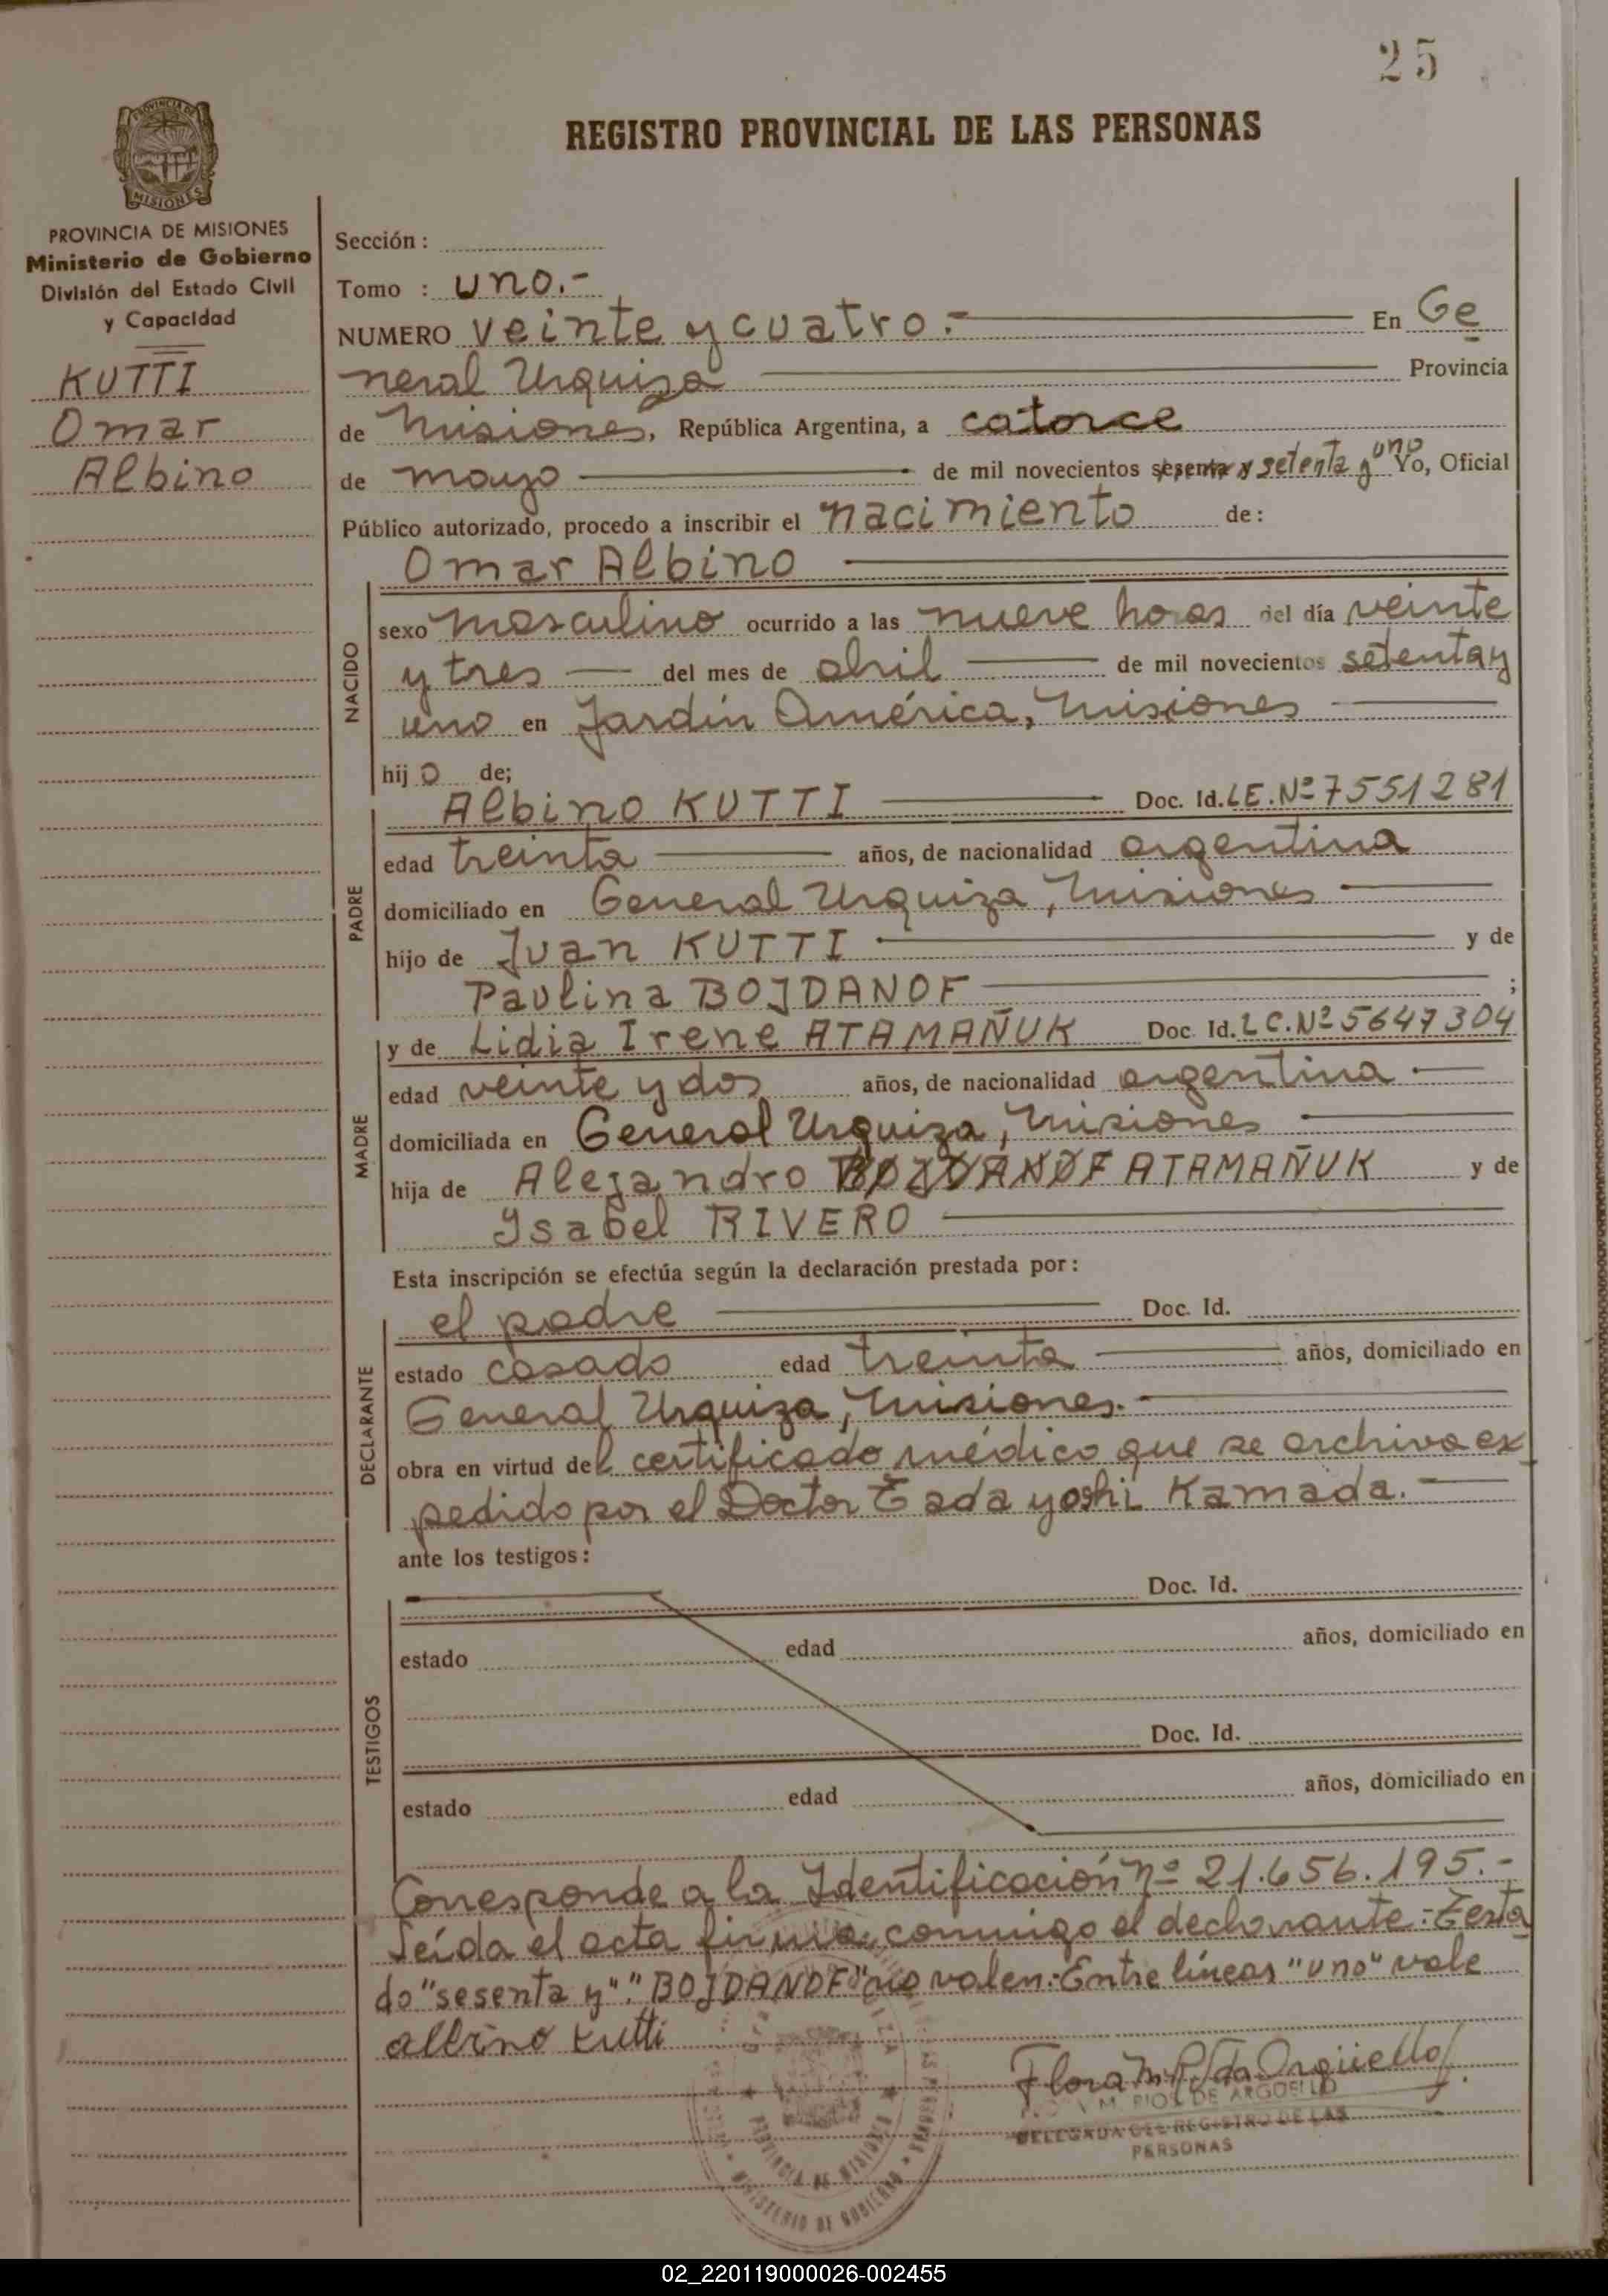 25
REGISTRO PROVINCIAL DE LAS PERSONAS
PROVINCIA DE MISIONES
PROVINCIA DE MISIONES
Ministerio de Gobierno
División del Estado Civil
y Capacidad
KUTTI
Omar
Albino
Sección :
Tomo : uno.-
NUMERO veinte y cuatro.- En Ge
neral Urquiza Provincia
de Misiones, República Argentina, a catorce
de mayo de mil novecientos sesenta y setenta y uno Yo, Oficial
Público autorizado, procedo a inscribir el nacimiento de:
Omar Albino
NACIDO
sexo masculino ocurrido a las nueve horas del día veinte
y tres del mes de abril de mil novecientos setenta y
uno en Jardín América, Misiones
hijo de;
PADRE
Albino KUTTI Doc. Id. LE. Nº 7551281
edad treinta años, de nacionalidad argentina
domiciliado en General Urquiza, Misiones
hijo de Juan KUTTI y de
Paulina BOJDANOF ;
MADRE
y de Lidia Irene ATAMAÑUK Doc. Id. LC. Nº 5647304
edad veinte y dos años, de nacionalidad argentina
domiciliada en General Urquiza, Misiones
hija de Alejandro BOJDANOF ATAMAÑUK y de
Isabel RIVERO
Esta inscripción se efectúa según la declaración prestada por:
DECLARANTE
el padre Doc. Id.
estado casado edad treinta años, domiciliado en
General Urquiza, Misiones.
obra en virtud del certificado médico que se archiva ex
pedido por el Doctor Tadayoshi Kamada.
ante los testigos:
TESTIGOS
Doc. Id.
estado edad años, domiciliado en
Doc. Id.
estado edad años, domiciliado en
Corresponde a la Identificación nº 21.656.195.-
Leída el acta firma conmigo el declarante.- Testa
do "sesenta y". "BOJDANOF" no valen.- Entre líneas "uno" vale
albino kutti
Flora M. R. de Argüello
M. RIOS DE ARGUELLO
DELEGADA DEL REGISTRO DE LAS
PERSONAS
PROVINCIA DE MISIONES
MINISTERIO DE GOBIERNO
02_220119000026-002455